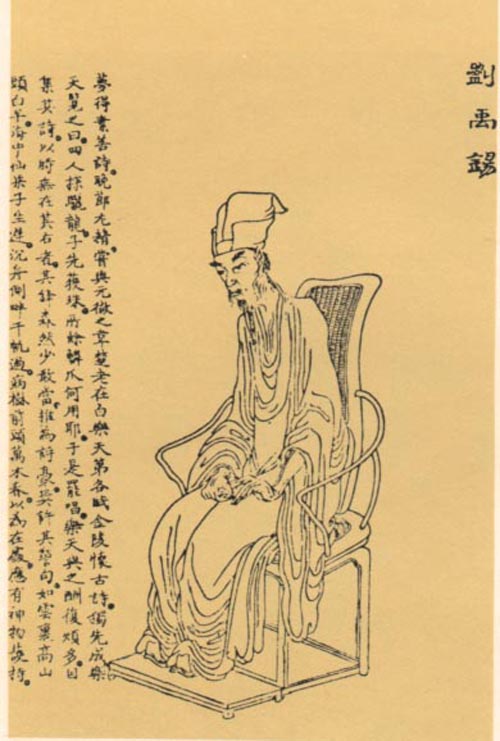 劉禹錫
夢得素善詩。晚節尤精。嘗與元微之韋楚老在白樂天第各賦金陵懷古詩。先成樂
天覽之曰。四人探驪龍。子先獲珠。所餘鱗爪何用耶。于是罷唱。樂天與之酬復頗多。因
集其詩。以時無在其右者。其鋒森然少敢當。推為詩豪。其警句。如雪裏高山
頭白早。海中仙果子生遲。沉舟側畔千帆過。病樹前頭萬木春。以為在處。應有神物護持。